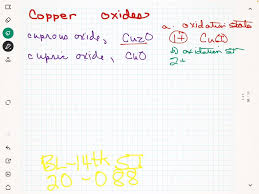 Copper oxides
a. oxidation state
cuprous oxide, Cu2O
1+
cupric oxide, CuO
b) oxidation st
2+
BL-14th St
20-088